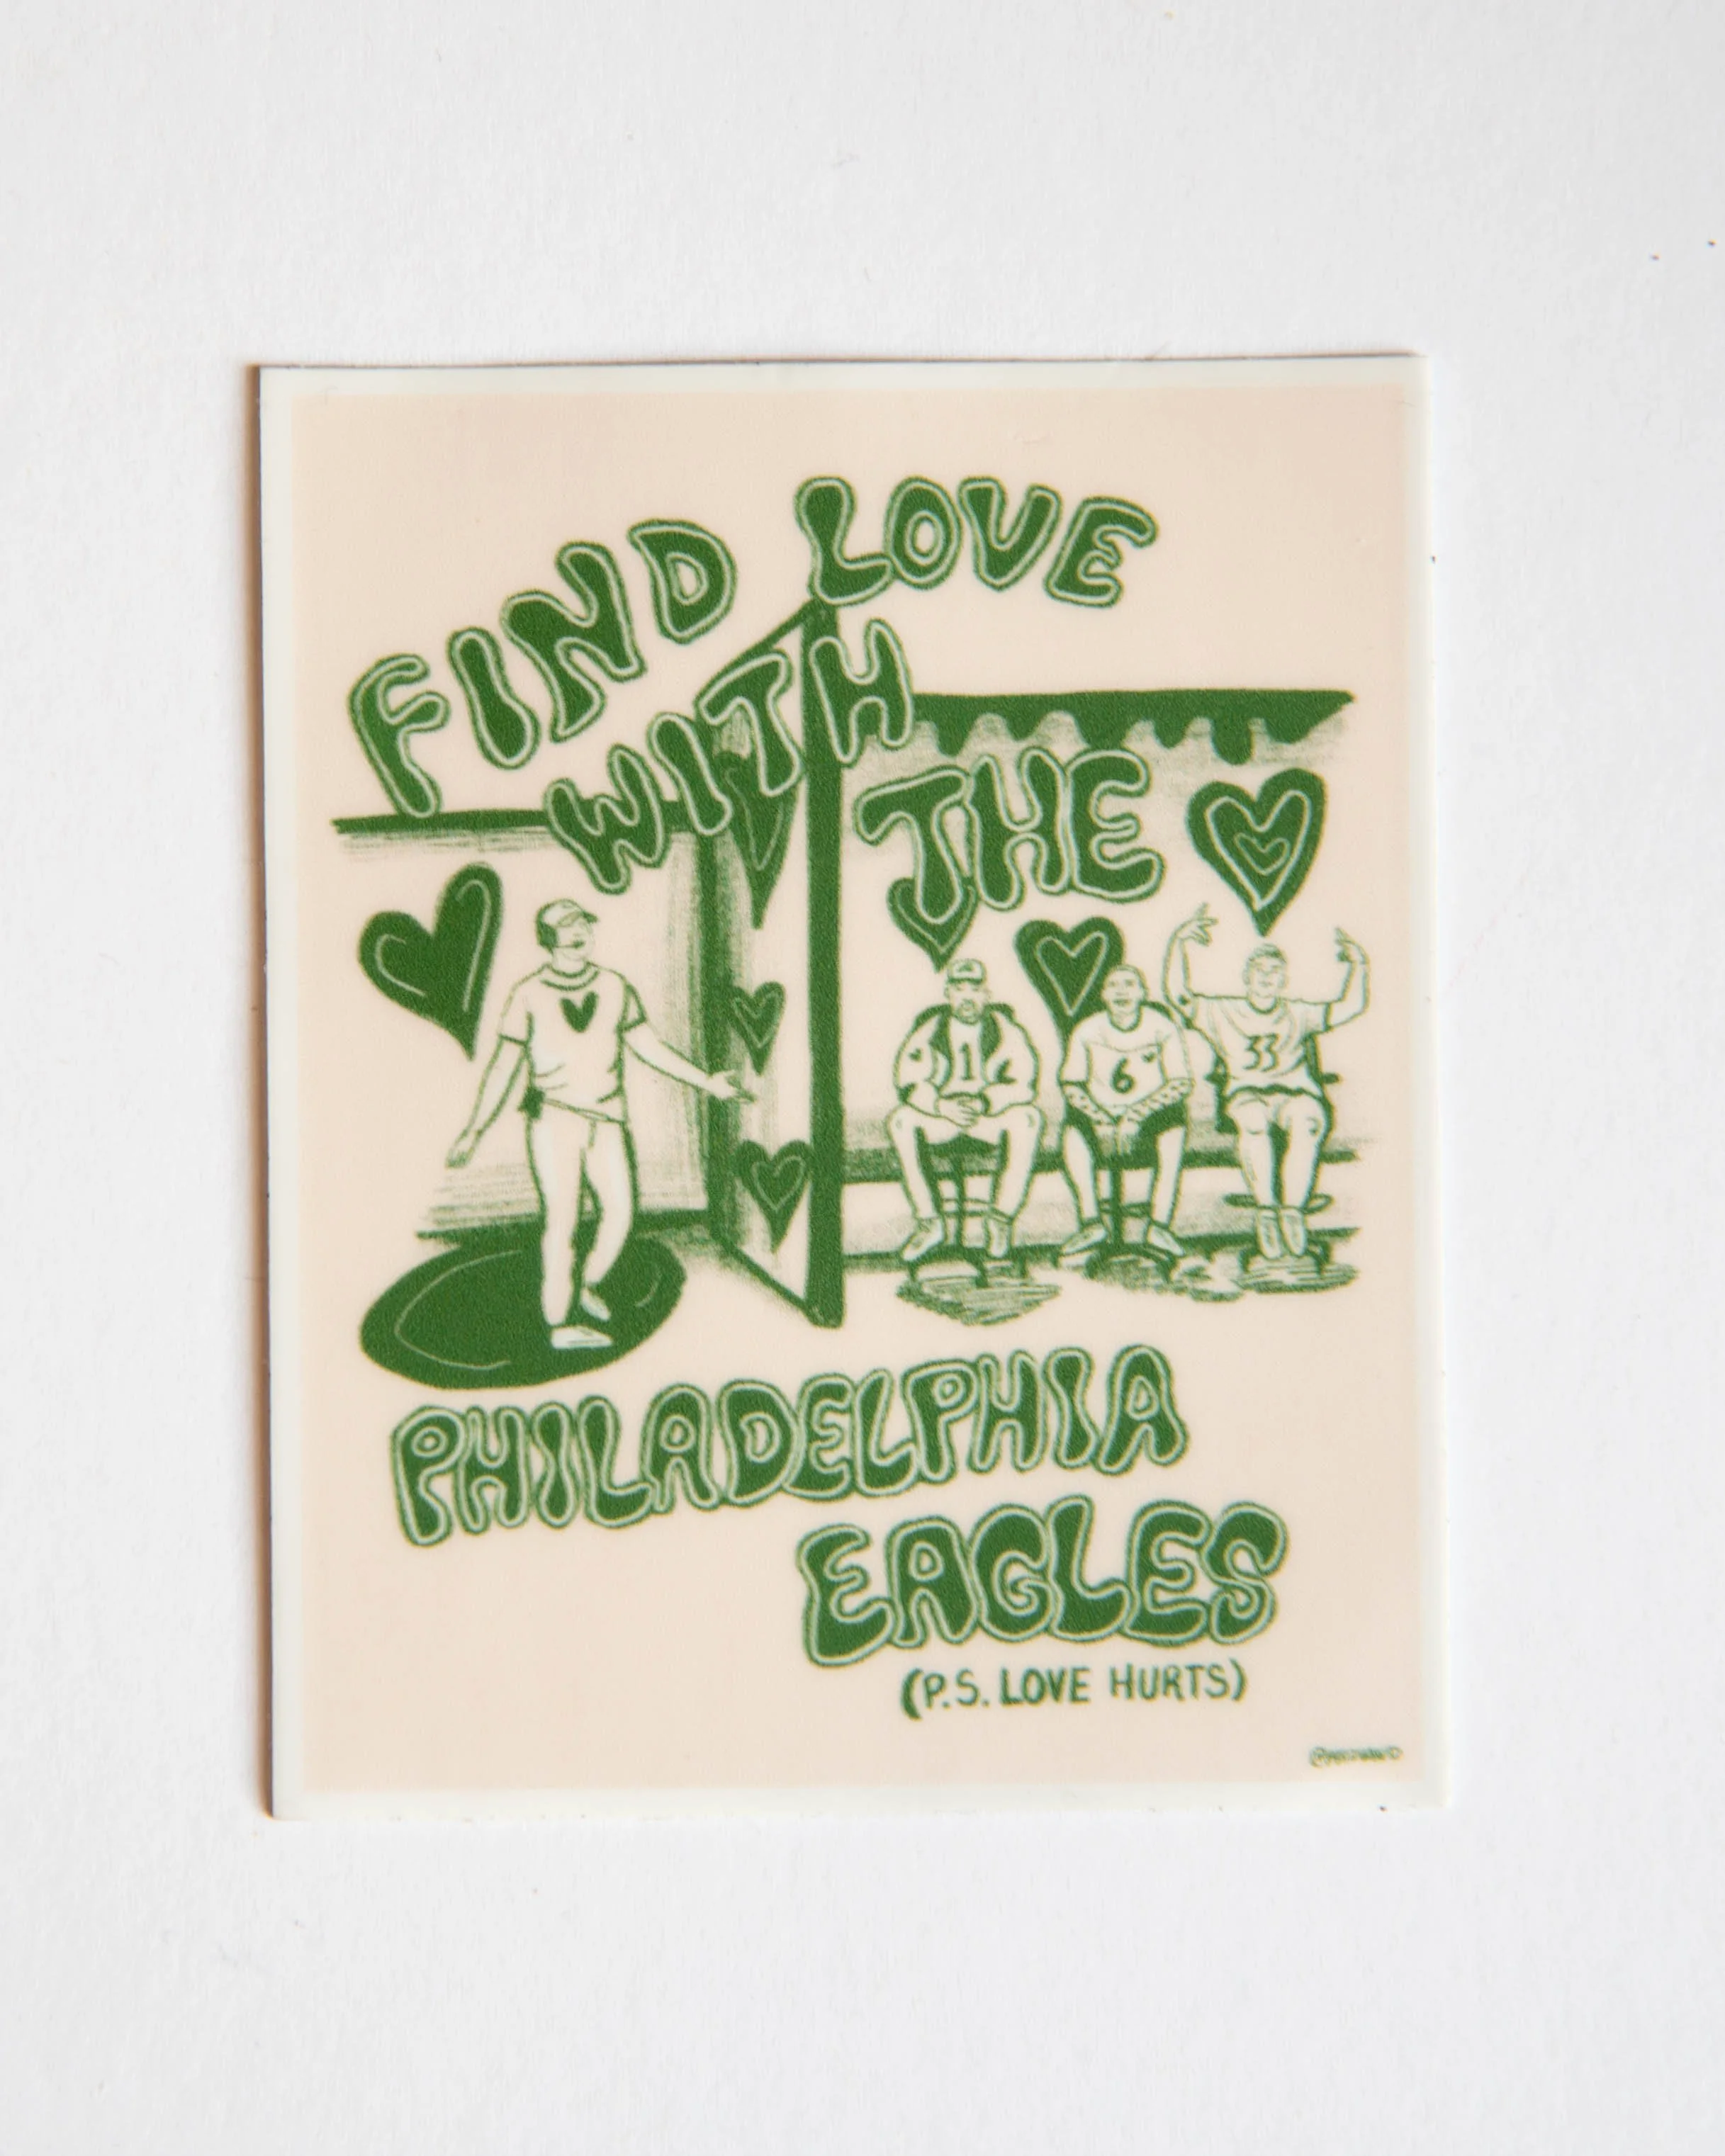 FIND LOVE
WITH
THE
1
6
33
PHILADELPHIA
EAGLES
(P.S. LOVE HURTS)